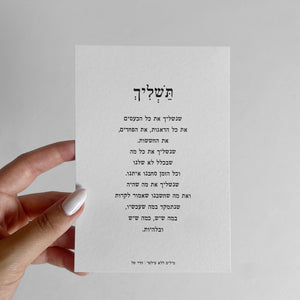 תַּשְׁלִיךְ
שנשליך את כל הכעסים
את כל הדאגות, את הפחדים,
את החששות.
שנשליך את כל מה
שבכלל לא שלנו
וכל הזמן סחבנו איתנו.
שנשליך את מה שהיה
ואת מה שחשבנו שאמור לקרות
שנתמקד במה שעכשיו,
במה שיש, כמה שיש
ובלהיות.
מילים ללא מילוי